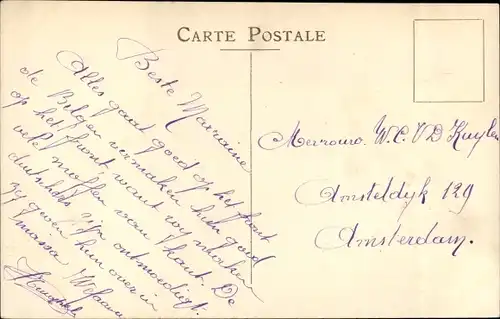 CARTE POSTALE
Beste Marraine
Alles gaat goed op het front
de Belgen vermaken hun goed
op het front want wy maken
vele moffen van kant. De
dutschers zijn ontmoedigt.
zy geven hun over in
massa
Mevrouw. W.C.V.D Kuylen
Amsteldyk 129
Amsterdam.